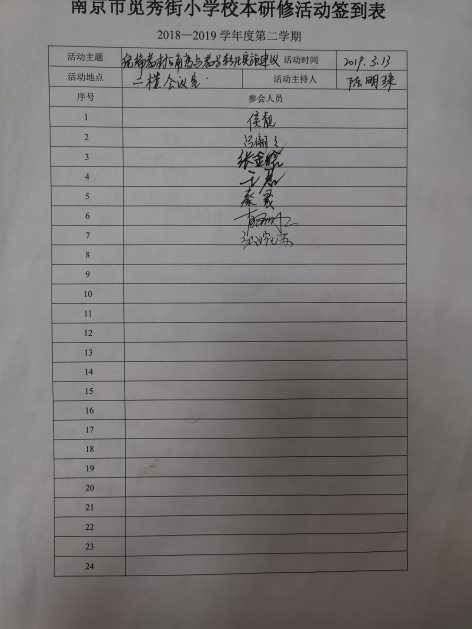 南京市觅秀街小学校本研修活动签到表
2018—2019 学年度第二学期
活动主题 活动时间 2019.3.13
活动地点 二楼会议室 活动主持人 陈明珠
序号 参会人员
1 侯靓
2
3 张金晗
4 王磊
5 秦霞
6
7
8
9
10
11
12
13
14
15
16
17
18
19
20
21
22
23
24